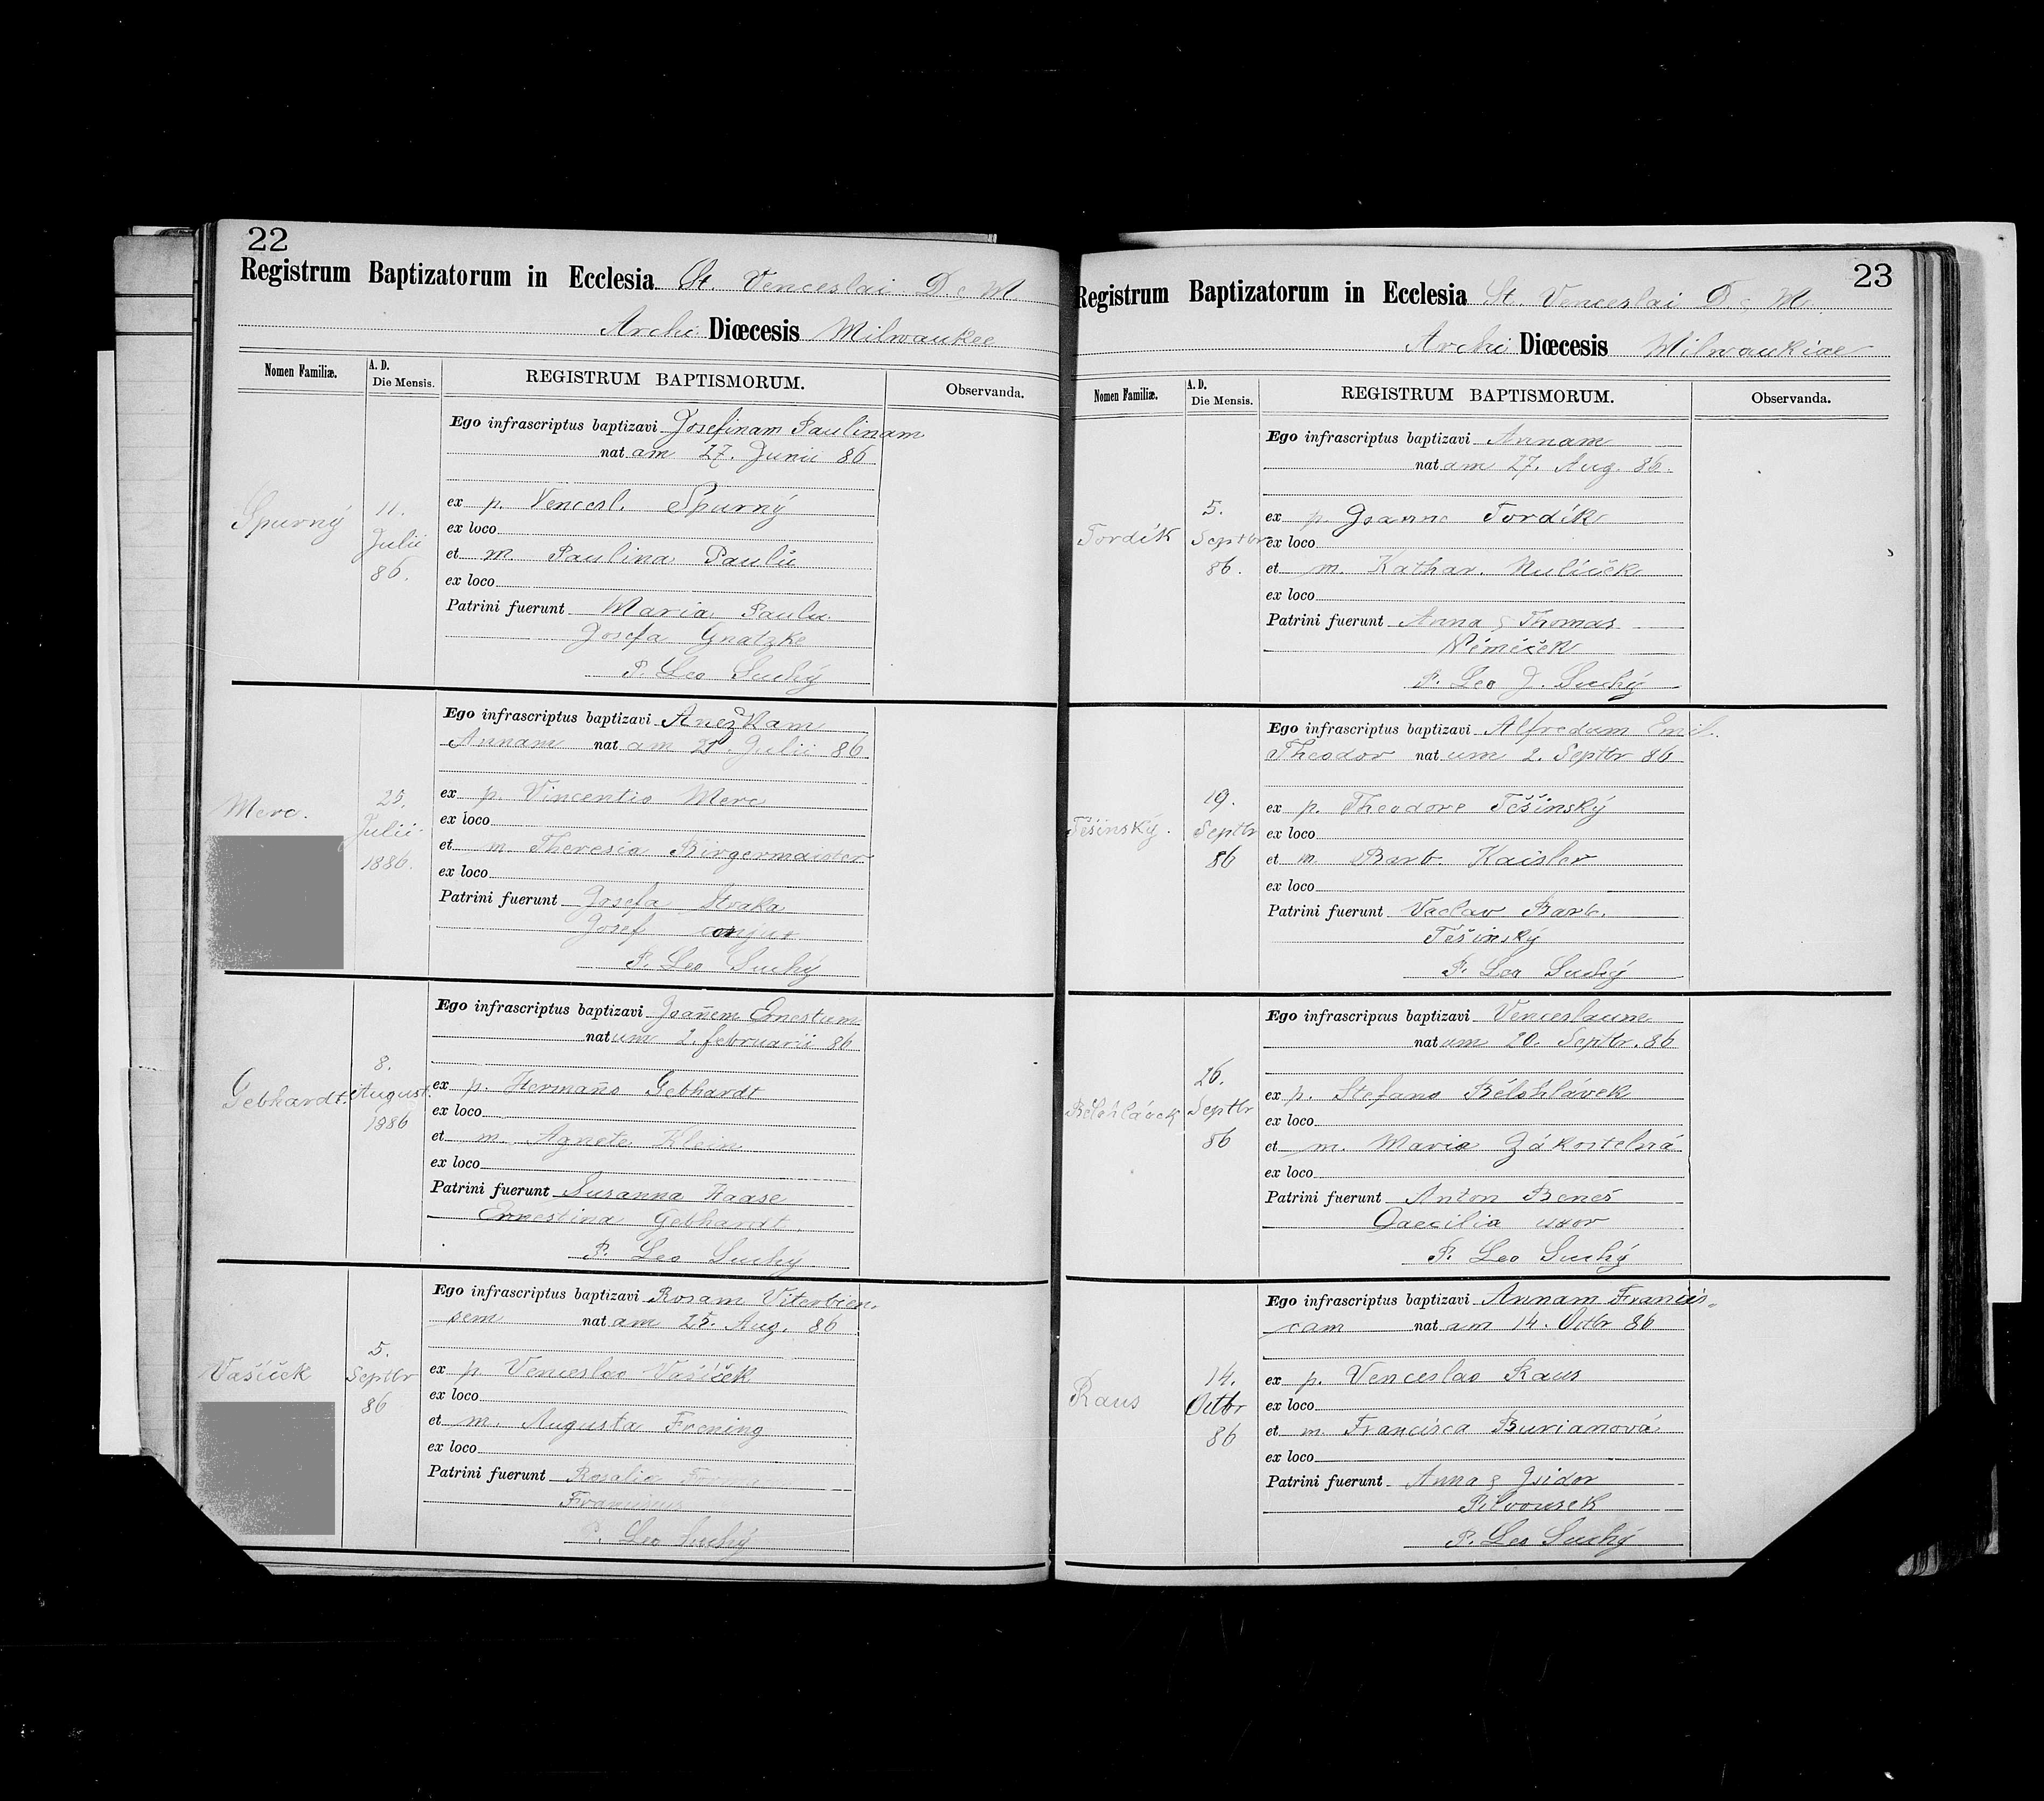 22
Registrum Baptizatorum in Ecclesia St. Venceslai D. & M.
Archi Diœcesis Milwaukee
Nomen Familiæ.
A. D.
Die Mensis.
REGISTRUM BAPTISMORUM.
Observanda.
Spurný
11.
Julii
86.
Ego infrascriptus baptizavi Josefinam Paulinam
natam 27. Junii 86
ex p. Vencesl. Spurný
ex loco
et m Paulina Paulů
ex loco
Patrini fuerunt Maria Paulu
Josefa Gnatzke
P. Leo Suchý
Merc.
25.
Julii
1886.
Ego infrascriptus baptizavi Anežkam
Annam natam 21. Julii 86
ex p. Vincentio Merc
ex loco
et m. Theresia Birgermaister
ex loco
Patrini fuerunt Josefa Straka
Josef conjux
P. Leo Suchý
Gebhardt.
8.
August.
1886
Ego infrascriptus baptizavi Joañem Ernestum
natum 2. februarii 86
ex p. Hermaño Gebhardt
ex loco
et m. Agnete Klein
ex loco
Patrini fuerunt Susanna Haase
Ernestina Gebhardt.
P. Leo Suchý
Vašíček
5.
Septbr
86
Ego infrascriptus baptizavi Rosam Viterbien-
sem natam 25. Aug. 86
ex p. Venceslao Vašíček
ex loco
et m. Augusta Frening
ex loco
Patrini fuerunt Rosalia
Franciscus
P. Leo Suchý
23
Registrum Baptizatorum in Ecclesia St. Venceslai D. & M.
Archi Diœcesis Milwaukiae
Nomen Familiæ.
A. D.
Die Mensis.
REGISTRUM BAPTISMORUM.
Observanda.
Tordík
5.
Septbr
86.
Ego infrascriptus baptizavi Annam
natam 27. Aug. 86.
ex p. Joanne Tordík
ex loco
et m. Kathar. Nulíček
ex loco
Patrini fuerunt Anna & Thomas
Němeček
P. Leo J. Suchý
Těšínský.
19.
Septbr
86
Ego infrascriptus baptizavi Alfredum Emil.
Theodor natum 2. Septbr 86
ex p. Theodore Těšinský
ex loco
et m. Barb Kaisler
ex loco
Patrini fuerunt Vaclav Barb.
Těšinský
P. Leo Suchý
Bělohlávek
26.
Septbr
86
Ego infrascriptus baptizavi Venceslaum
natum 20. Septbr. 86
ex p. Stefano Bělohlávek
ex loco
et m. Maria Zákostelná
ex loco
Patrini fuerunt Anton Beneš
Caecilia uxor
P. Leo Suchý
Raus
14.
Octbr
86
Ego infrascriptus baptizavi Annam Francis-
cam natam 14. Octbr 86
ex p. Venceslao Raus
ex loco
et m. Francisca Burianová
ex loco
Patrini fuerunt Anna & Isidor
P. Leo Suchý